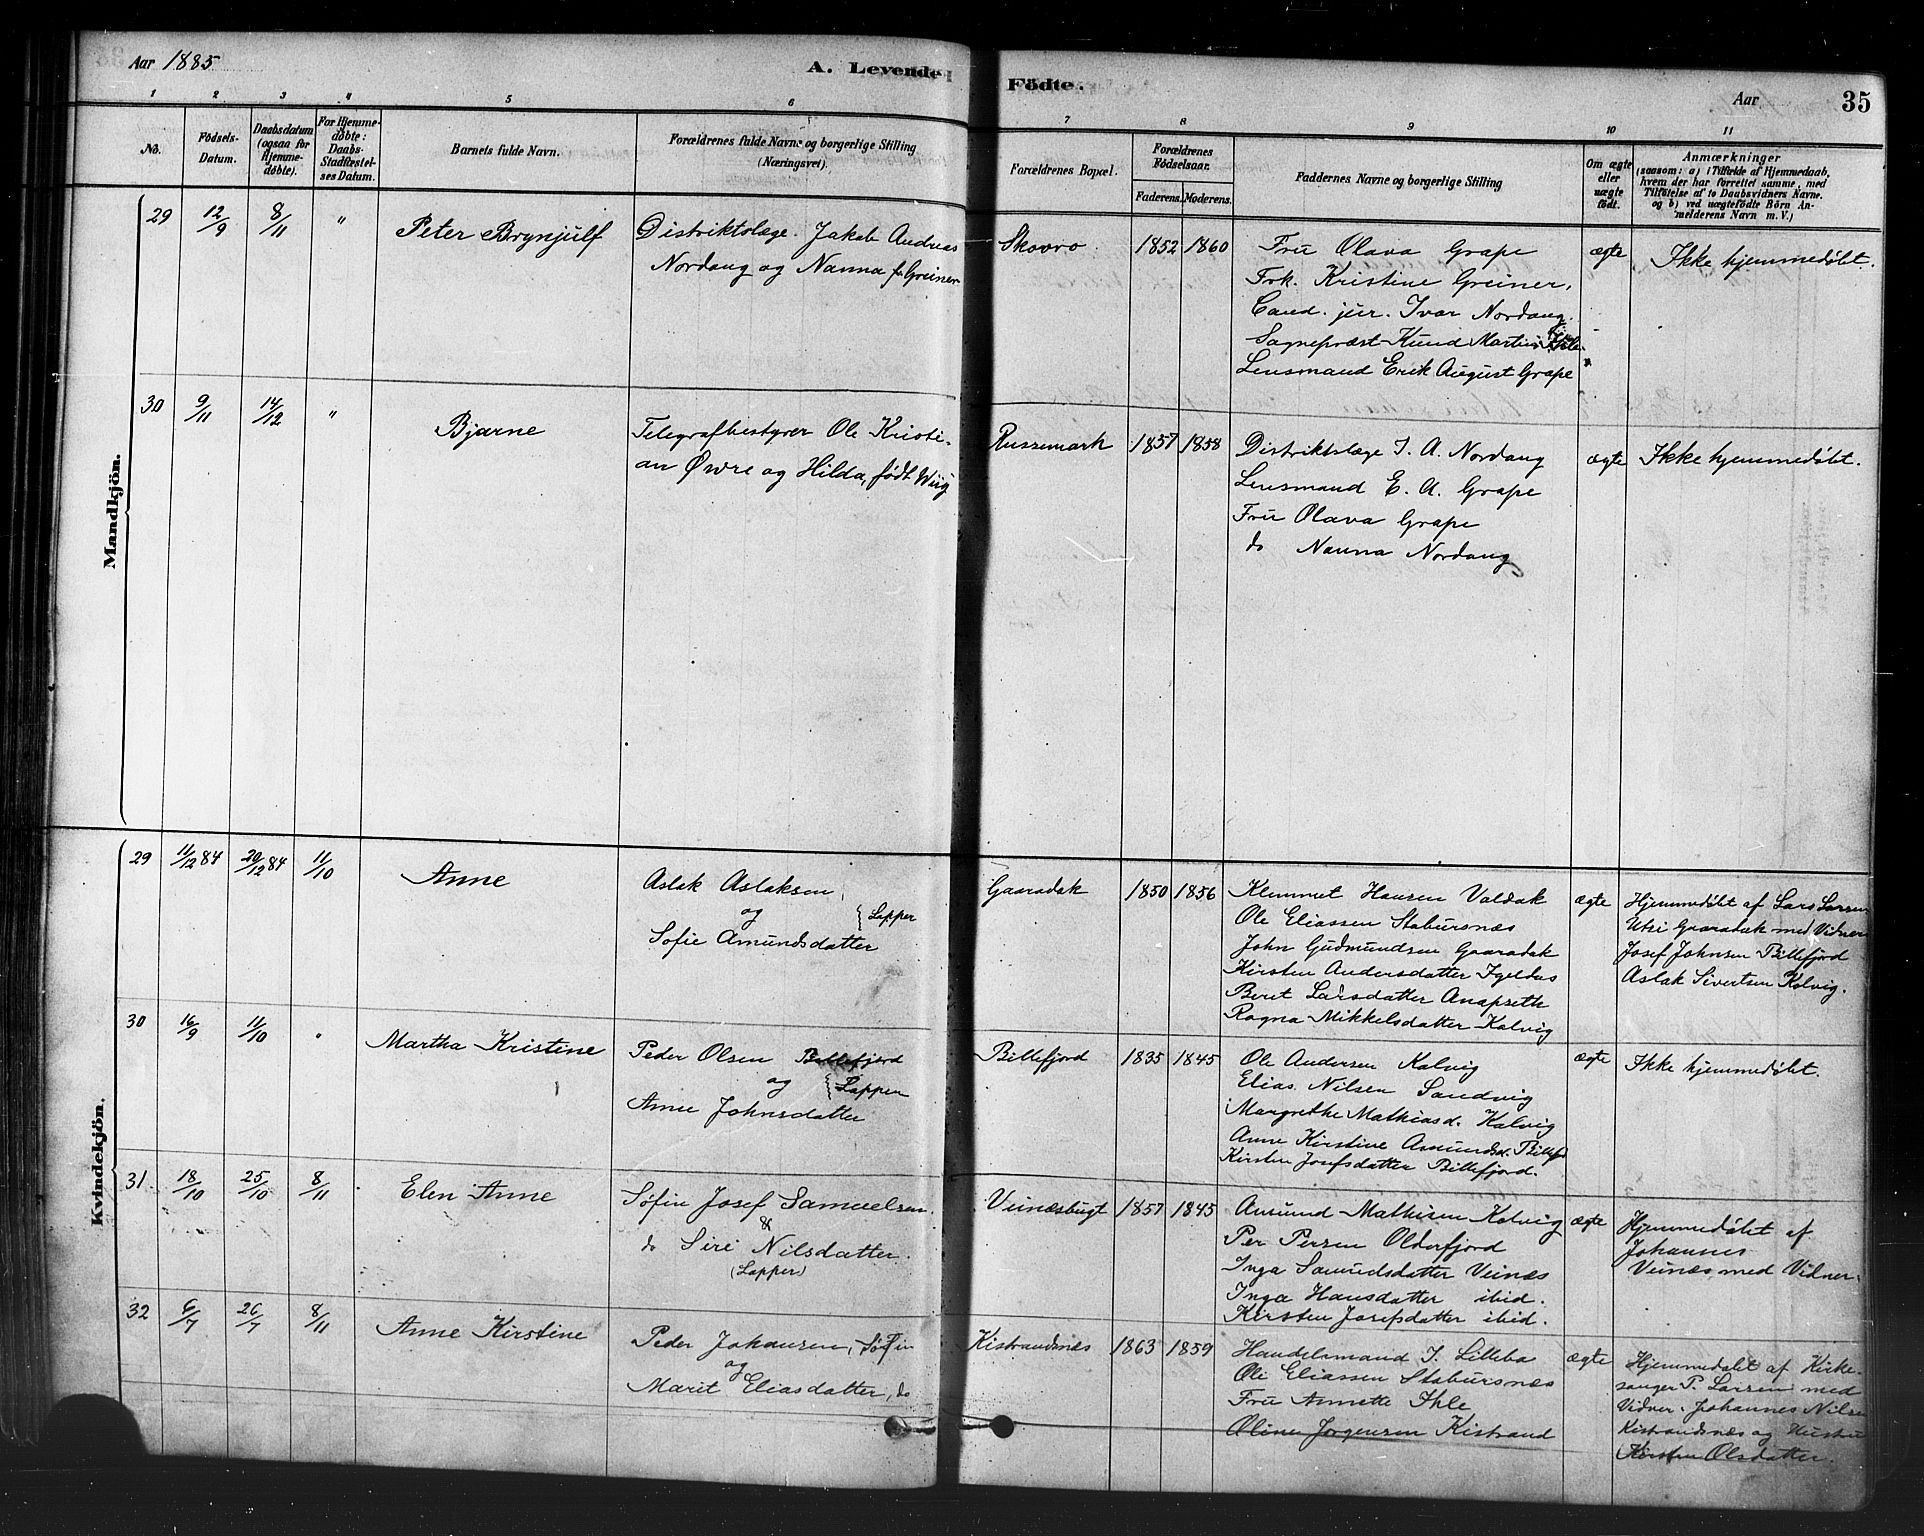 Aar 1885
A. Levende
Födte.
Aar
35
1 2 3 4 5 6 7 8 9 10 11
No.
Fødsels-Datum.
Daabsdatum (ogsaa for Hjemme-døbte).
For Hjemme-døbte: Daabs-Stadfæstel-ses Datum.
Barnets fulde Navn.
Forældrenes fulde Navne og borgerlige Stilling (Næringsvei).
Forældrenes Bopæl.
Forældrenes Födselsaar.
Faderens. Moderens.
Faddernes Navne og borgerlige Stilling
Om ægte eller uægte født.
Anmærkninger
(saasom: a) i Tilfælde af Hjemmedaab, hvem der har forrettet samme, med Tilföielse af to Daabsvidners Navne. og b) ved uægtefödte Börn Anmelderens Navn m. V.)
Mandkjön.
29 12/9 8/11 " Peter Brynjulf
Distriktslæge Jakob Andreas
Nordang og Nanna f. Greiner
Skovro 1852 1860
Fru Olava Grape
Frk. Kristine Greiner,
Cand. jur. Ivar Nordang.
Sognepræst Knud Martin Ihle
Lensmand Erik August Grape
ægte Ikke hjemmedøbt.
30 9/11 14/12 " Bjarne
Telegrafbestyrer Ole Kristi-
an Øwre og Hilda, født Wiig
Russemark 1857 1858
Distriktslæge J. A. Nordang
Lensmand E. A. Grape
Fru Olava Grape
do Nanna Nordang
ægte Ikke hjemmedøbt.
Kvindekjön.
29 11/12 84 20/12 84 11/10 Anne
Aslak Aslaksen,
og } Lapper
Sofie Amundsdatter
Gaaradak 1850 1856
Klemmet Hansen Valdak
Ole Eliassen Stabursnæs
John Gudmundsen Gaaradak
Kirsten Andersdatter Igeldas
Beret Larsdatter Anapseth
Ragna Mikkelsdatter Kolvig
ægte
Hjemmedøbt af Lars Larsen
Utsi Gaaradak med Vidner
Josef Johnsen Billefjord
Aslak Sivertsen Kolvig.
30 16/9 11/10 " Martha Kristine
Peder Olsen Billefjord
og } Lapper
Anne Johnsdatter
Billefjord 1835 1845
Ole Andersen Kolvig
Elias Nilsen Sandvig
Margrethe Mathiasd. Kolvig
Anne Kirstine Asmundsd. Billefj
Kirsten Josefsdatter Billefjord.
ægte Ikke hjemmedøbt.
31 18/10 25/10 8/11 Elen Anne
Søfin Josef Samuelsen
&
do Siri Nilsdatter.
(Lapper)
Veinæsbugt 1857 1845
Amund Mathisen Kolvig
Per Persen Olderfjord
Inga Samuelsdatter Veinæs
Inga Hansdatter ibid.
Kirsten Josefsdatter ibid.
ægte
Hjemmedøbt af
Johannes
Veinæs med Vidner.
32 6/7 26/7 8/11 Anne Kirstine
Peder Johansen, Søfin
og
Marit Eliasdatter, do
Kistrandsnæs 1863 1859
Handelsmand J. Lilleba
Ole Eliassen Stabursnæs
Fru Annette Ihle
Oline Jørgensen Kistrand
ægte
Hjemmedøbt af Kirke-
sanger P. Larsen med
Vidner Johannes Nilsen
Kistrandsnæs og Hustru
Kirsten Olsdatter.